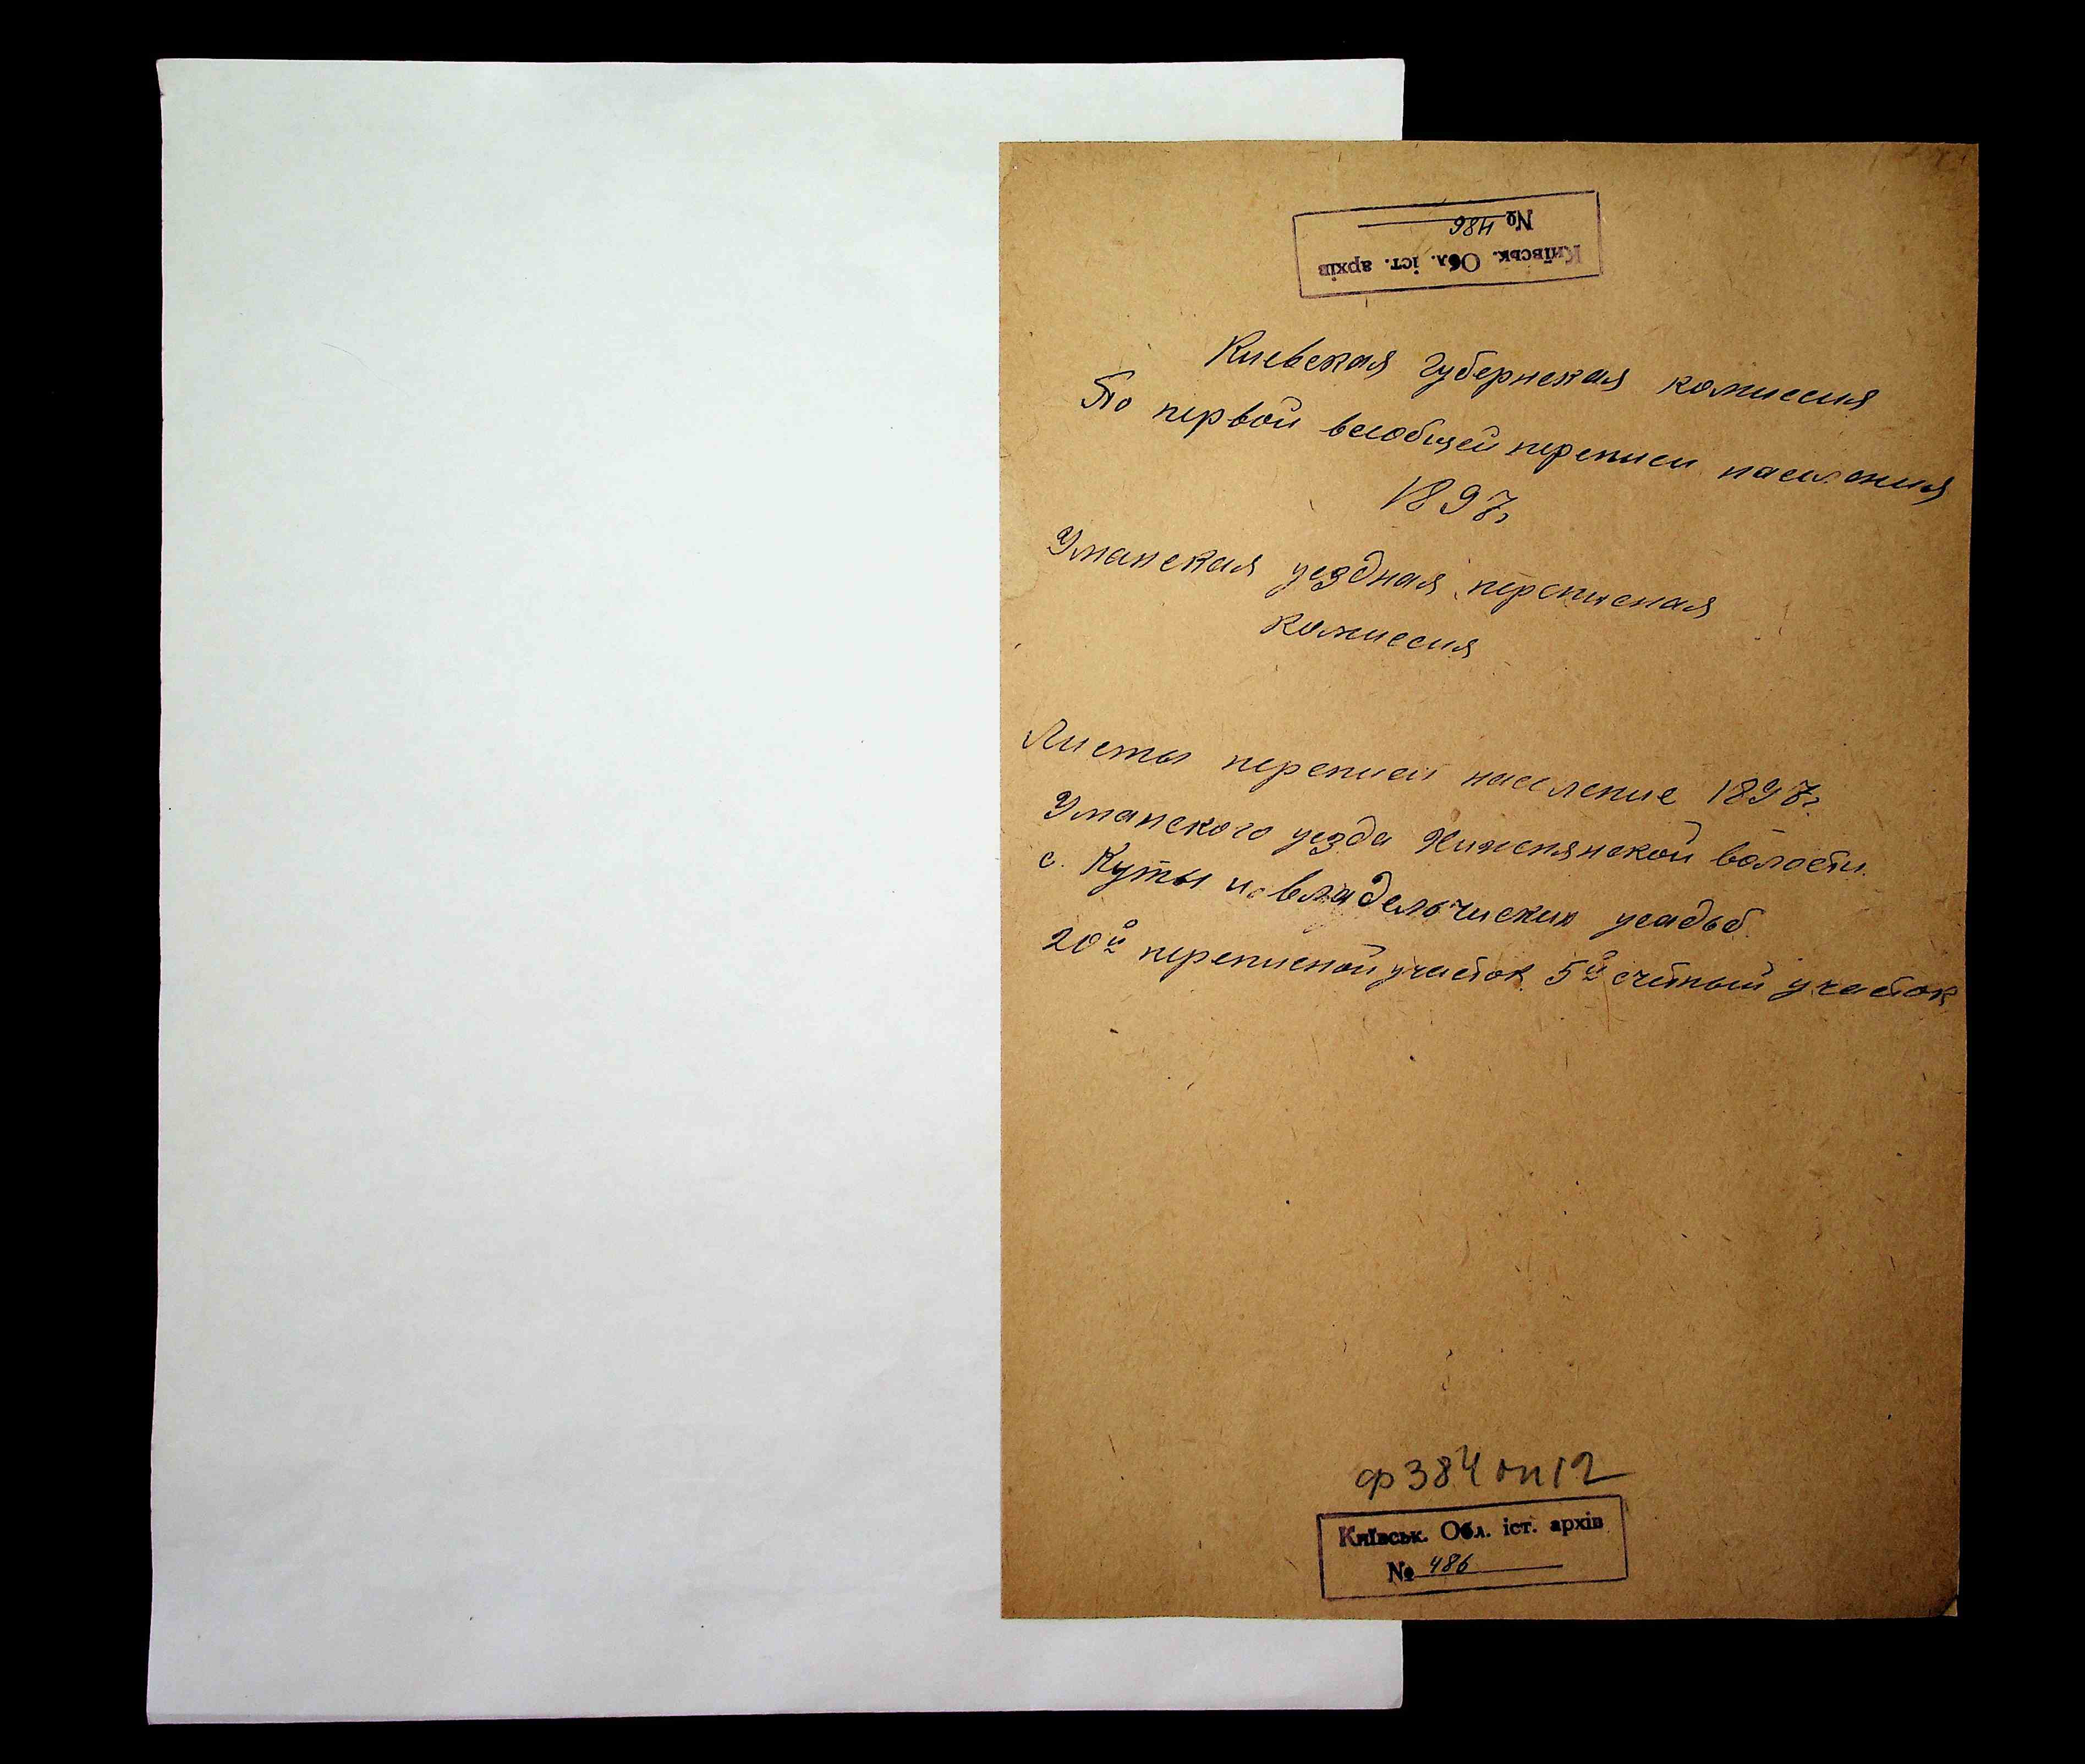 Київськ. Обл. іст. архів
№ 486
Киевская Губернская комиссия
По первой всеобщей переписи населения
1897г
Уманская уездная переписная
комиссия
Листы переписи население 1897г.
Уманского уезда волости.
с. Куты и владельческих усадьб.
20й переписной участок 5й счётный участок
ф 384 оп 12
Київськ. Обл. іст. архів
№ 486